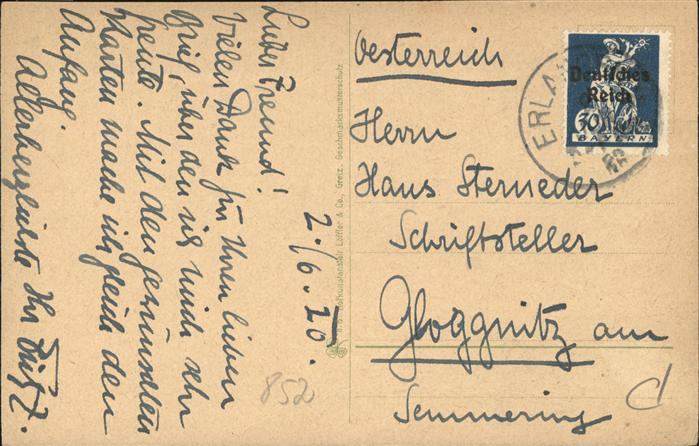 Lieber Freund!
Vielen Dank für Ihren lieben
Brief, über den ich mich sehr
freute. Mit den gewünschten
Karten mache ich gleich den
Anfang.
Allerherzlichst Ihr Fritz Z.
2./6. 20.
852
K. B. Hofkunstanstalt Löffler & Co., Greiz. Geschmacksmusterschutz
Oesterreich
Herrn
Hans Sterneder
Schriftsteller
Gloggnitz am
Semmering
ERLA
Deutsches
Reich
30
BAYERN